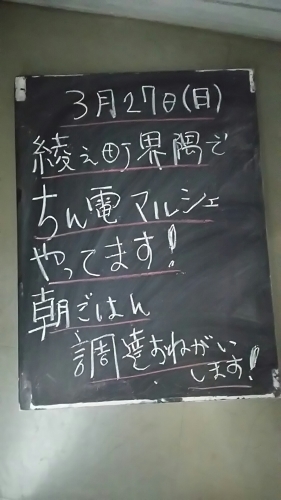 3月27日(日)
綾之町界隈で
ちん電マルシェ
やってます!
朝ごはん
調達おねがい
します!